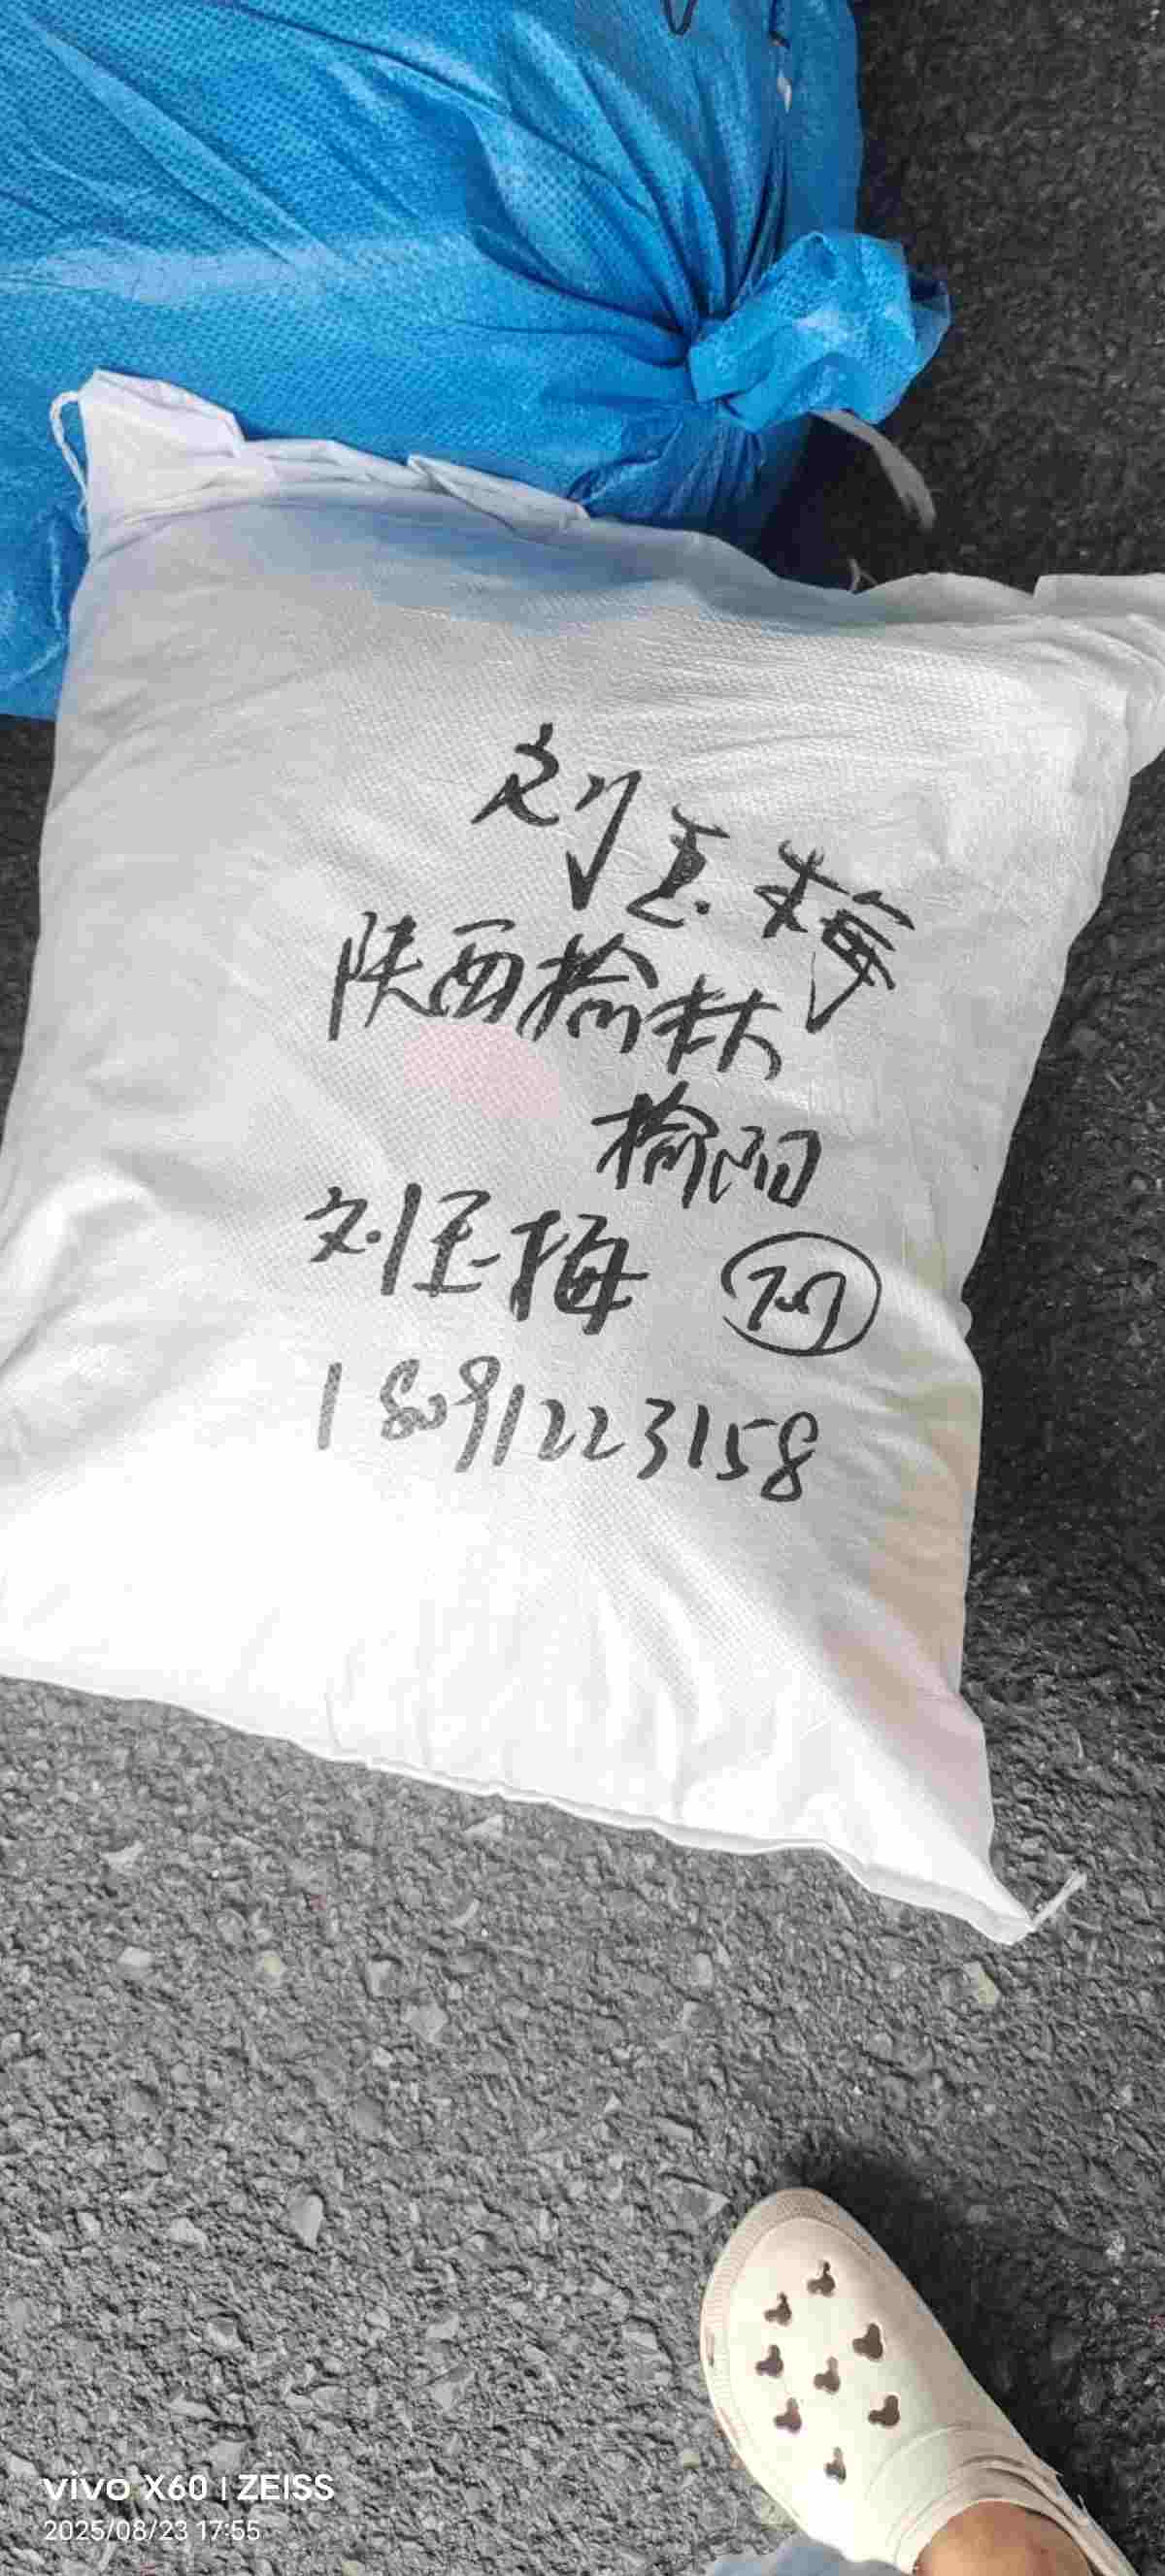 刘玉梅
陕西榆林
榆阳
刘玉梅
18091223158
vivo X60 | ZEISS
2025/08/23 17:55